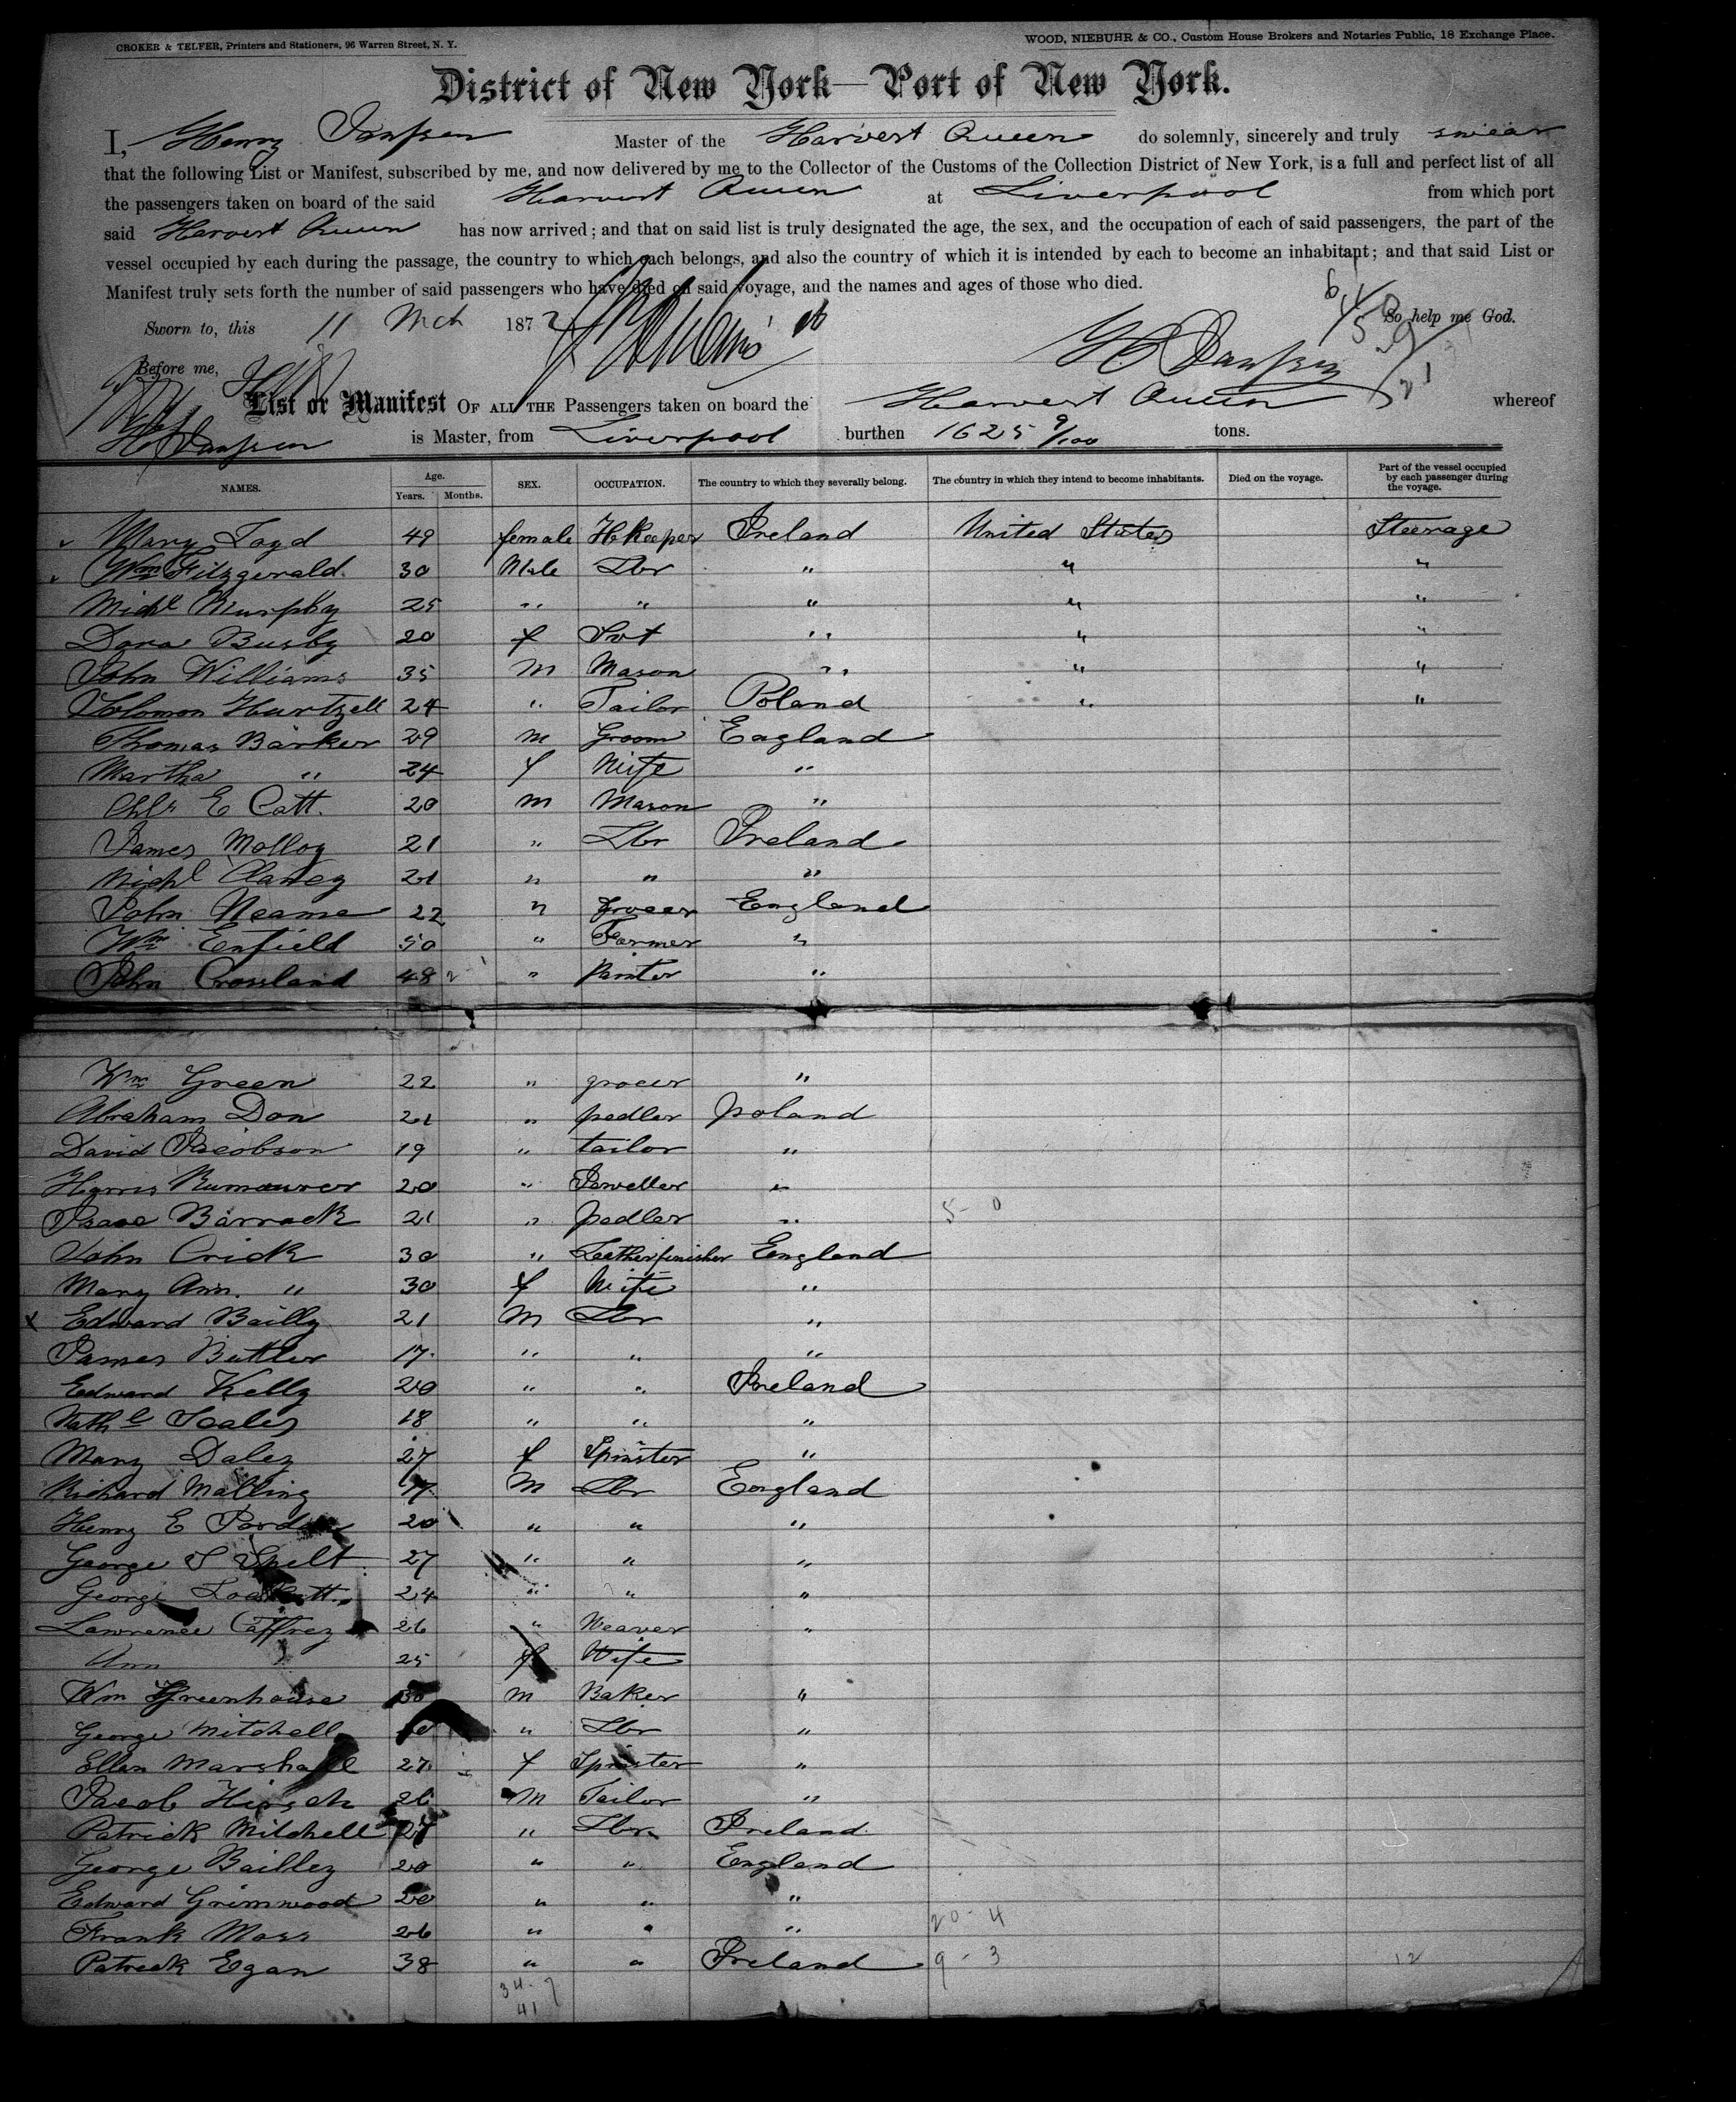 CROKER & TELFER, Printers and Stationers, 96 Warren Street, N. Y. WOOD, NIEBUHR & CO., Custom House Brokers and Notaries Public, 18 Exchange Place.
District of New York—Port of New York.
I, Henry Janssen Master of the Harvest Queen do solemnly, sincerely and truly swear
that the following List or Manifest, subscribed by me, and now delivered by me to the Collector of the Customs of the Collection District of New York, is a full and perfect list of all
the passengers taken on board of the said Harvest Queen at Liverpool from which port
said Harvest Queen has now arrived; and that on said list is truly designated the age, the sex, and the occupation of each of said passengers, the part of the
vessel occupied by each during the passage, the country to which each belongs, and also the country of which it is intended by each to become an inhabitant; and that said List or
Manifest truly sets forth the number of said passengers who have died on said voyage, and the names and ages of those who died.
Sworn to, this 11 Mch 187 So help me God.
Before me, H Janssen
List or Manifest OF ALL THE Passengers taken on board the Harvest Queen whereof
H Janssen is Master, from Liverpool burthen 1625 9/100 tons.
NAMES. Age. Years. Months. SEX. OCCUPATION. The country to which they severally belong. The country in which they intend to become inhabitants. Died on the voyage. Part of the vessel occupied by each passenger during the voyage.
Mary 49 female HKeeper Ireland United States Steerage
Wm Fitzgerald 30 Male Lbr " " "
Michl Murphy 25 " " " " "
Dora Busby 20 f Svt " " "
John Williams 35 m Mason " " "
Solomon Hurtzell 24 " Tailor Poland " "
Thomas Barker 29 m Groom England
Martha " 24 f Wife "
Chls E Catt. 20 m Mason "
James Molloy 21 " Lbr Ireland
Michl Clancy 21 " " "
John Neame 22 " grocer England
Wm Enfield 50 " Farmer "
John Crossland 48 " Painter "
Wm Green 22 " grocer "
Abraham Don 21 " pedler poland
David Jacobson 19 " tailor "
Harris 20 " Jeweller "
Isaac Barrack 21 " pedler " 5- 0
John Crick 30 " Leather finisher England
Mary Ann. " 30 f Wife "
x Edward Bailly 21 M Lbr "
James Butler 17 " " "
Edward Kelly 20 " " Ireland
Nathl Scales 18 " " "
Mary Daley 27 f Spinster "
Richard Malling M Lbr England
Henry E 20 " " "
George S Spelt 27 " " "
George 24 " " "
Lawrence Caffrey 26 " Weaver "
Ann 25 f Wife
Wm Greenhouse 30 m Baker "
George Mitchell " Lbr "
Ellen Marshall 27 f Spinster "
Jacob Hirsch 26 M Tailor "
Patrick Mitchell 27 " Lbr Ireland
George Bailley 20 " " England
Edward Grimwood 20 " " "
Frank Moss 26 " " " 20- 4
Patrick Egan 38 " " Ireland 9 - 3 12
34-7
41